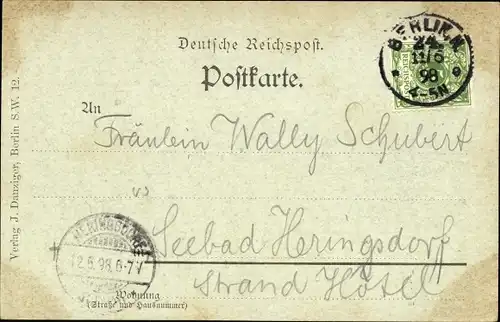 Deutsche Reichspost.
Postkarte.
BERLIN, N.
24
11/6
98
4-5N
An
Fräulein Wally Schubert
Seebad Heringsdorf
Strand Hôtel
HERINGSDORF
12.6.98.6-7V
Wohnung
(Straße und Hausnummer)
Verlag J. Danziger, Berlin S. W. 12.